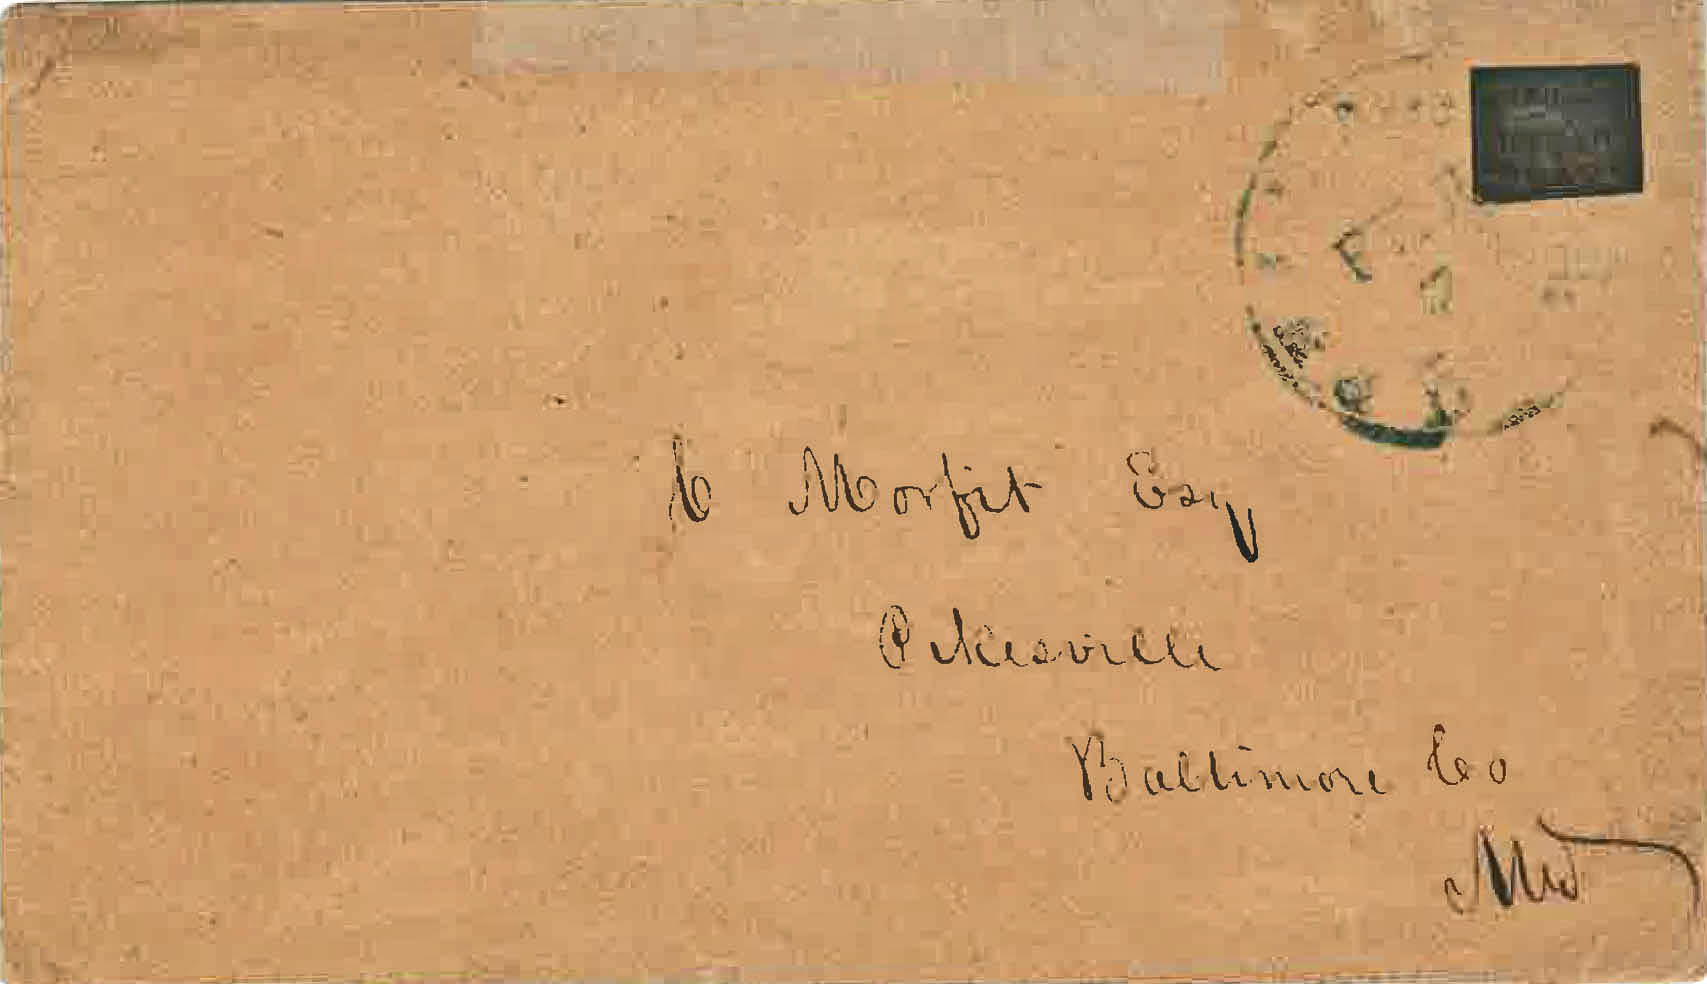 C Morfit Esq
Pikesville
Baltimore Co
Md